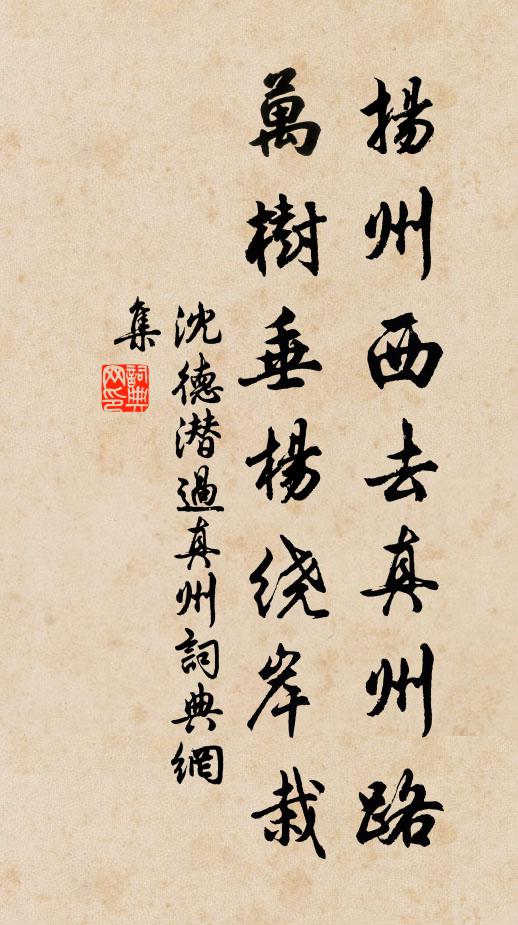 揚州西去真州路
萬樹垂楊绕岸栽
沈德潜過真州詞典網
集
詞典
网印